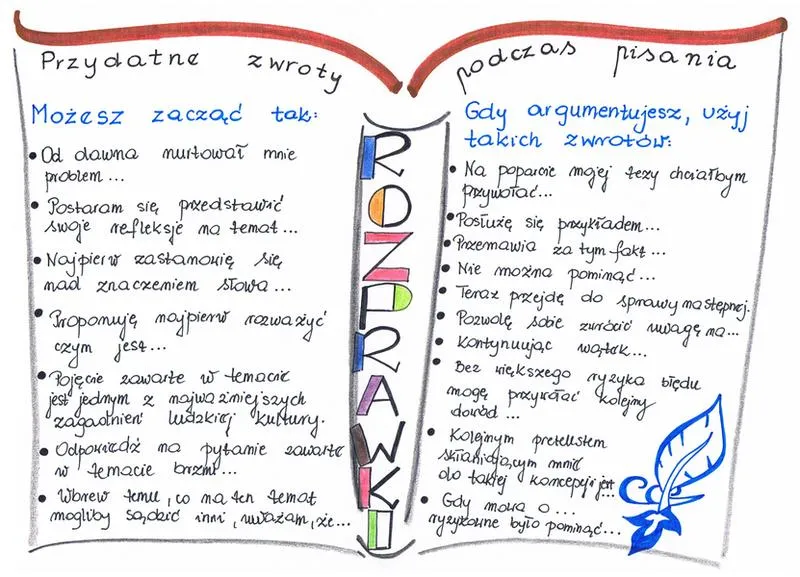 Przydatne zwroty podczas pisania
Możesz zacząć tak:
• Od dawna nurtował mnie
problem...
• Postaram się przedstawić
swoje refleksje na temat...
• Najpierw zastanowię się
nad znaczeniem słowa...
• Proponuję najpierw rozważyć
czym jest...
• Pojęcie zawarte w temacie
jest jednym z najważniejszych
zagadnień ludzkiej kultury.
• Odpowiedź na pytanie zawarte
w temacie brzmi...
• Wbrew temu, co na ten temat
mogliby sądzić inni, uważam, że...
ROZPRAWKA
Gdy argumentujesz, użyj
takich zwrotów:
• Na poparcie mojej tezy chciałbym
przywołać...
• Posłużę się przykładem...
• Przemawia za tym fakt...
• Nie można pominąć...
• Teraz przejdę do sprawy następnej.
• Pozwolę sobie zwrócić uwagę na...
• Kontynuując wątek...
• Bez większego ryzyka błędu
mogę przywołać kolejny
dowód...
• Kolejnym pretekstem
skłaniającym mnie
do takiej koncepcji jest...
• Gdy mowa o...
ryzykowne było pominąć...